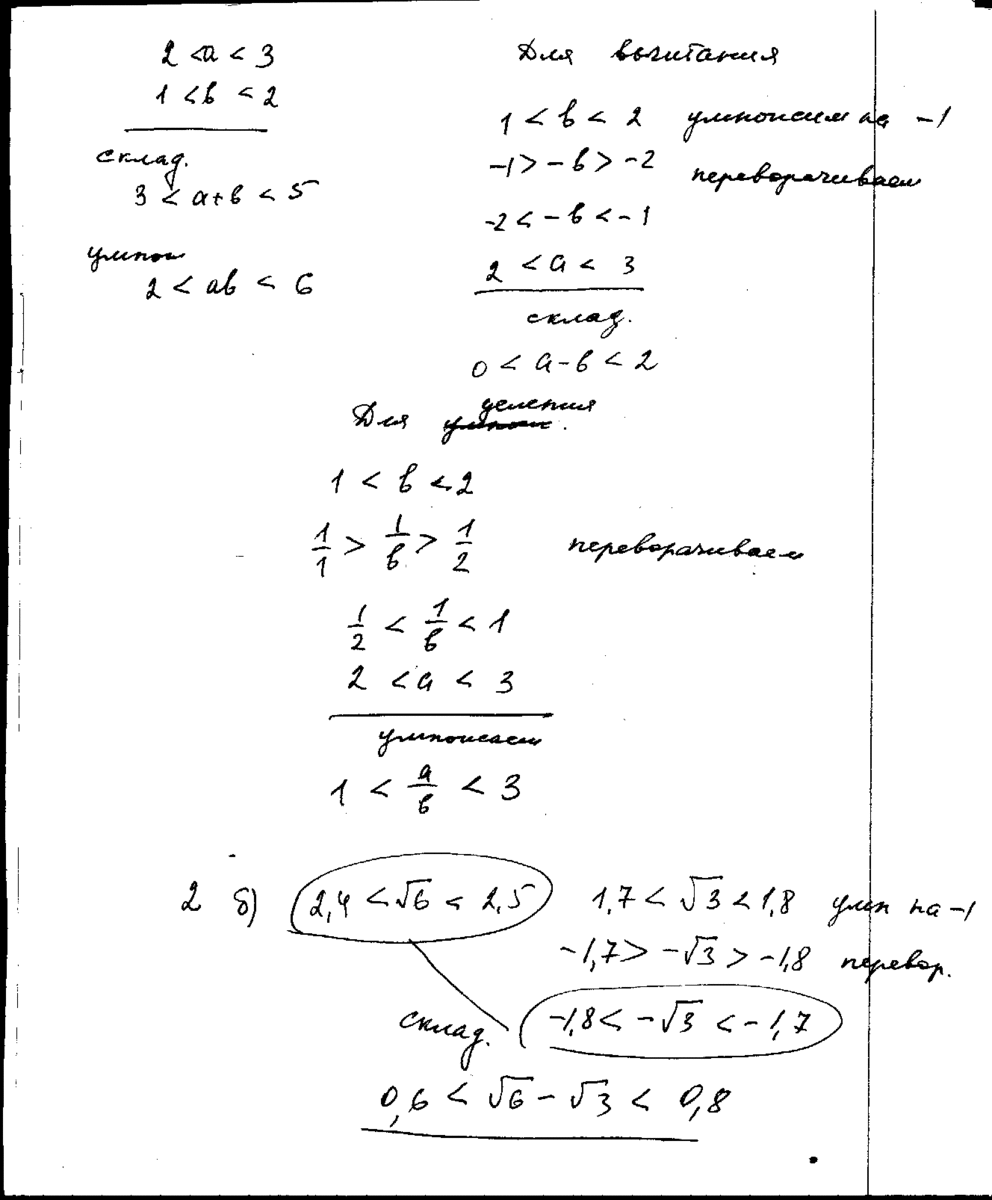 2 < a < 3
1 < в < 2
склад.
3 < а+в < 5
умнож
2 < ав < 6
Для вычитания
1 < в < 2 умножим на -1
-1 > -в > -2 переворачиваем
-2 < -в < -1
2 < а < 3
склад.
0 < а-в < 2
Для деления
1 < в < 2
1/1 > 1/в > 1/2 переворачиваем
1/2 < 1/в < 1
2 < а < 3
умножаем
1 < а/в < 3
2 б) 2,4 < √6 < 2,5 1,7 < √3 < 1,8 умн на -1
-1,7 > -√3 > -1,8 перевор.
склад. -1,8 < -√3 < -1,7
0,6 < √6 - √3 < 0,8